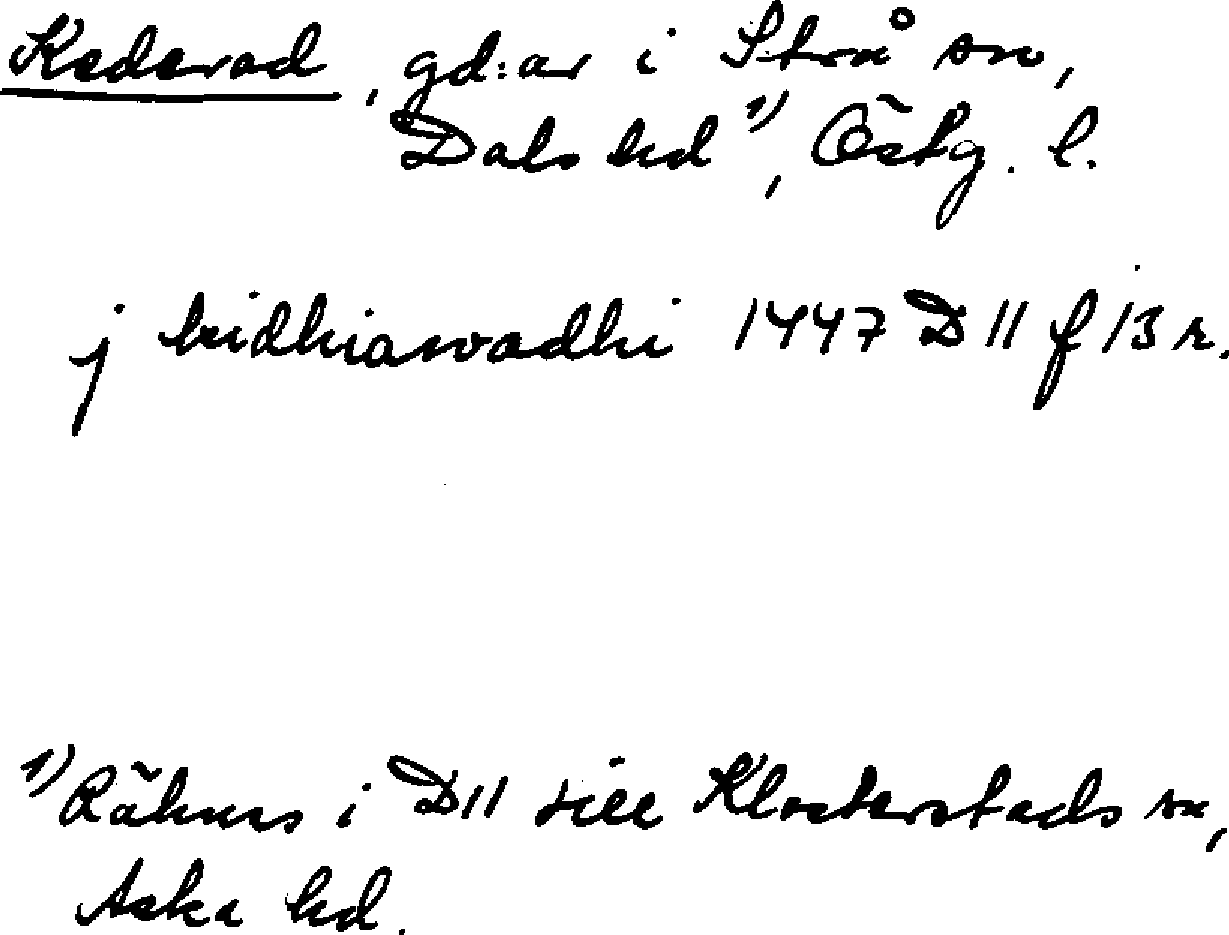 Kedevad, gd:ar i Strå sn,
Dals hd 1), Östg. l.
j kidhiawadhi 1447 D 11 f 13 r.
1) Räknas i D11 till Klosterstads sn,
Aska hd.